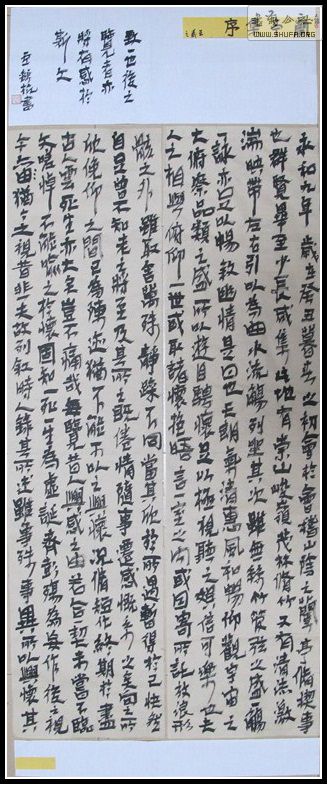 WWW.SHUFA.ORG
序
永和九年歲在癸丑暮春之初會於會稽山陰之蘭亭脩禊事
也群賢畢至少長咸集此地有崇山峻嶺茂林脩竹又有清流激
湍映帶左右引以為曲水流觴列坐其次雖無絲竹管弦之盛一觴
一詠亦足以暢敘幽情是日也天朗氣清惠風和暢仰觀宇宙之
大俯察品類之盛所以遊目騁懷足以極視聽之娛信可樂也夫
人之相與俯仰一世或取諸懷抱晤言一室之內或因寄所託放浪形
骸之外雖取舍萬殊靜躁不同當其欣於所遇暫得於己快然
自足曾不知老之將至及其所之既倦情隨事遷感慨系之矣向之所
欣俛仰之間已為陳迹猶不能不以之興懷況脩短化終期於盡
古人雲死生亦大矣豈不痛哉每覽昔人興感之由若合一契未嘗不臨
文嗟悼不能喻之於懷固知一死生為虛誕齊彭殤為妄作後視
今亦由今之視昔悲夫故列敘時人錄其所述雖世殊事異所以興懷其
致一也後之
覽者亦
將有感於
斯文